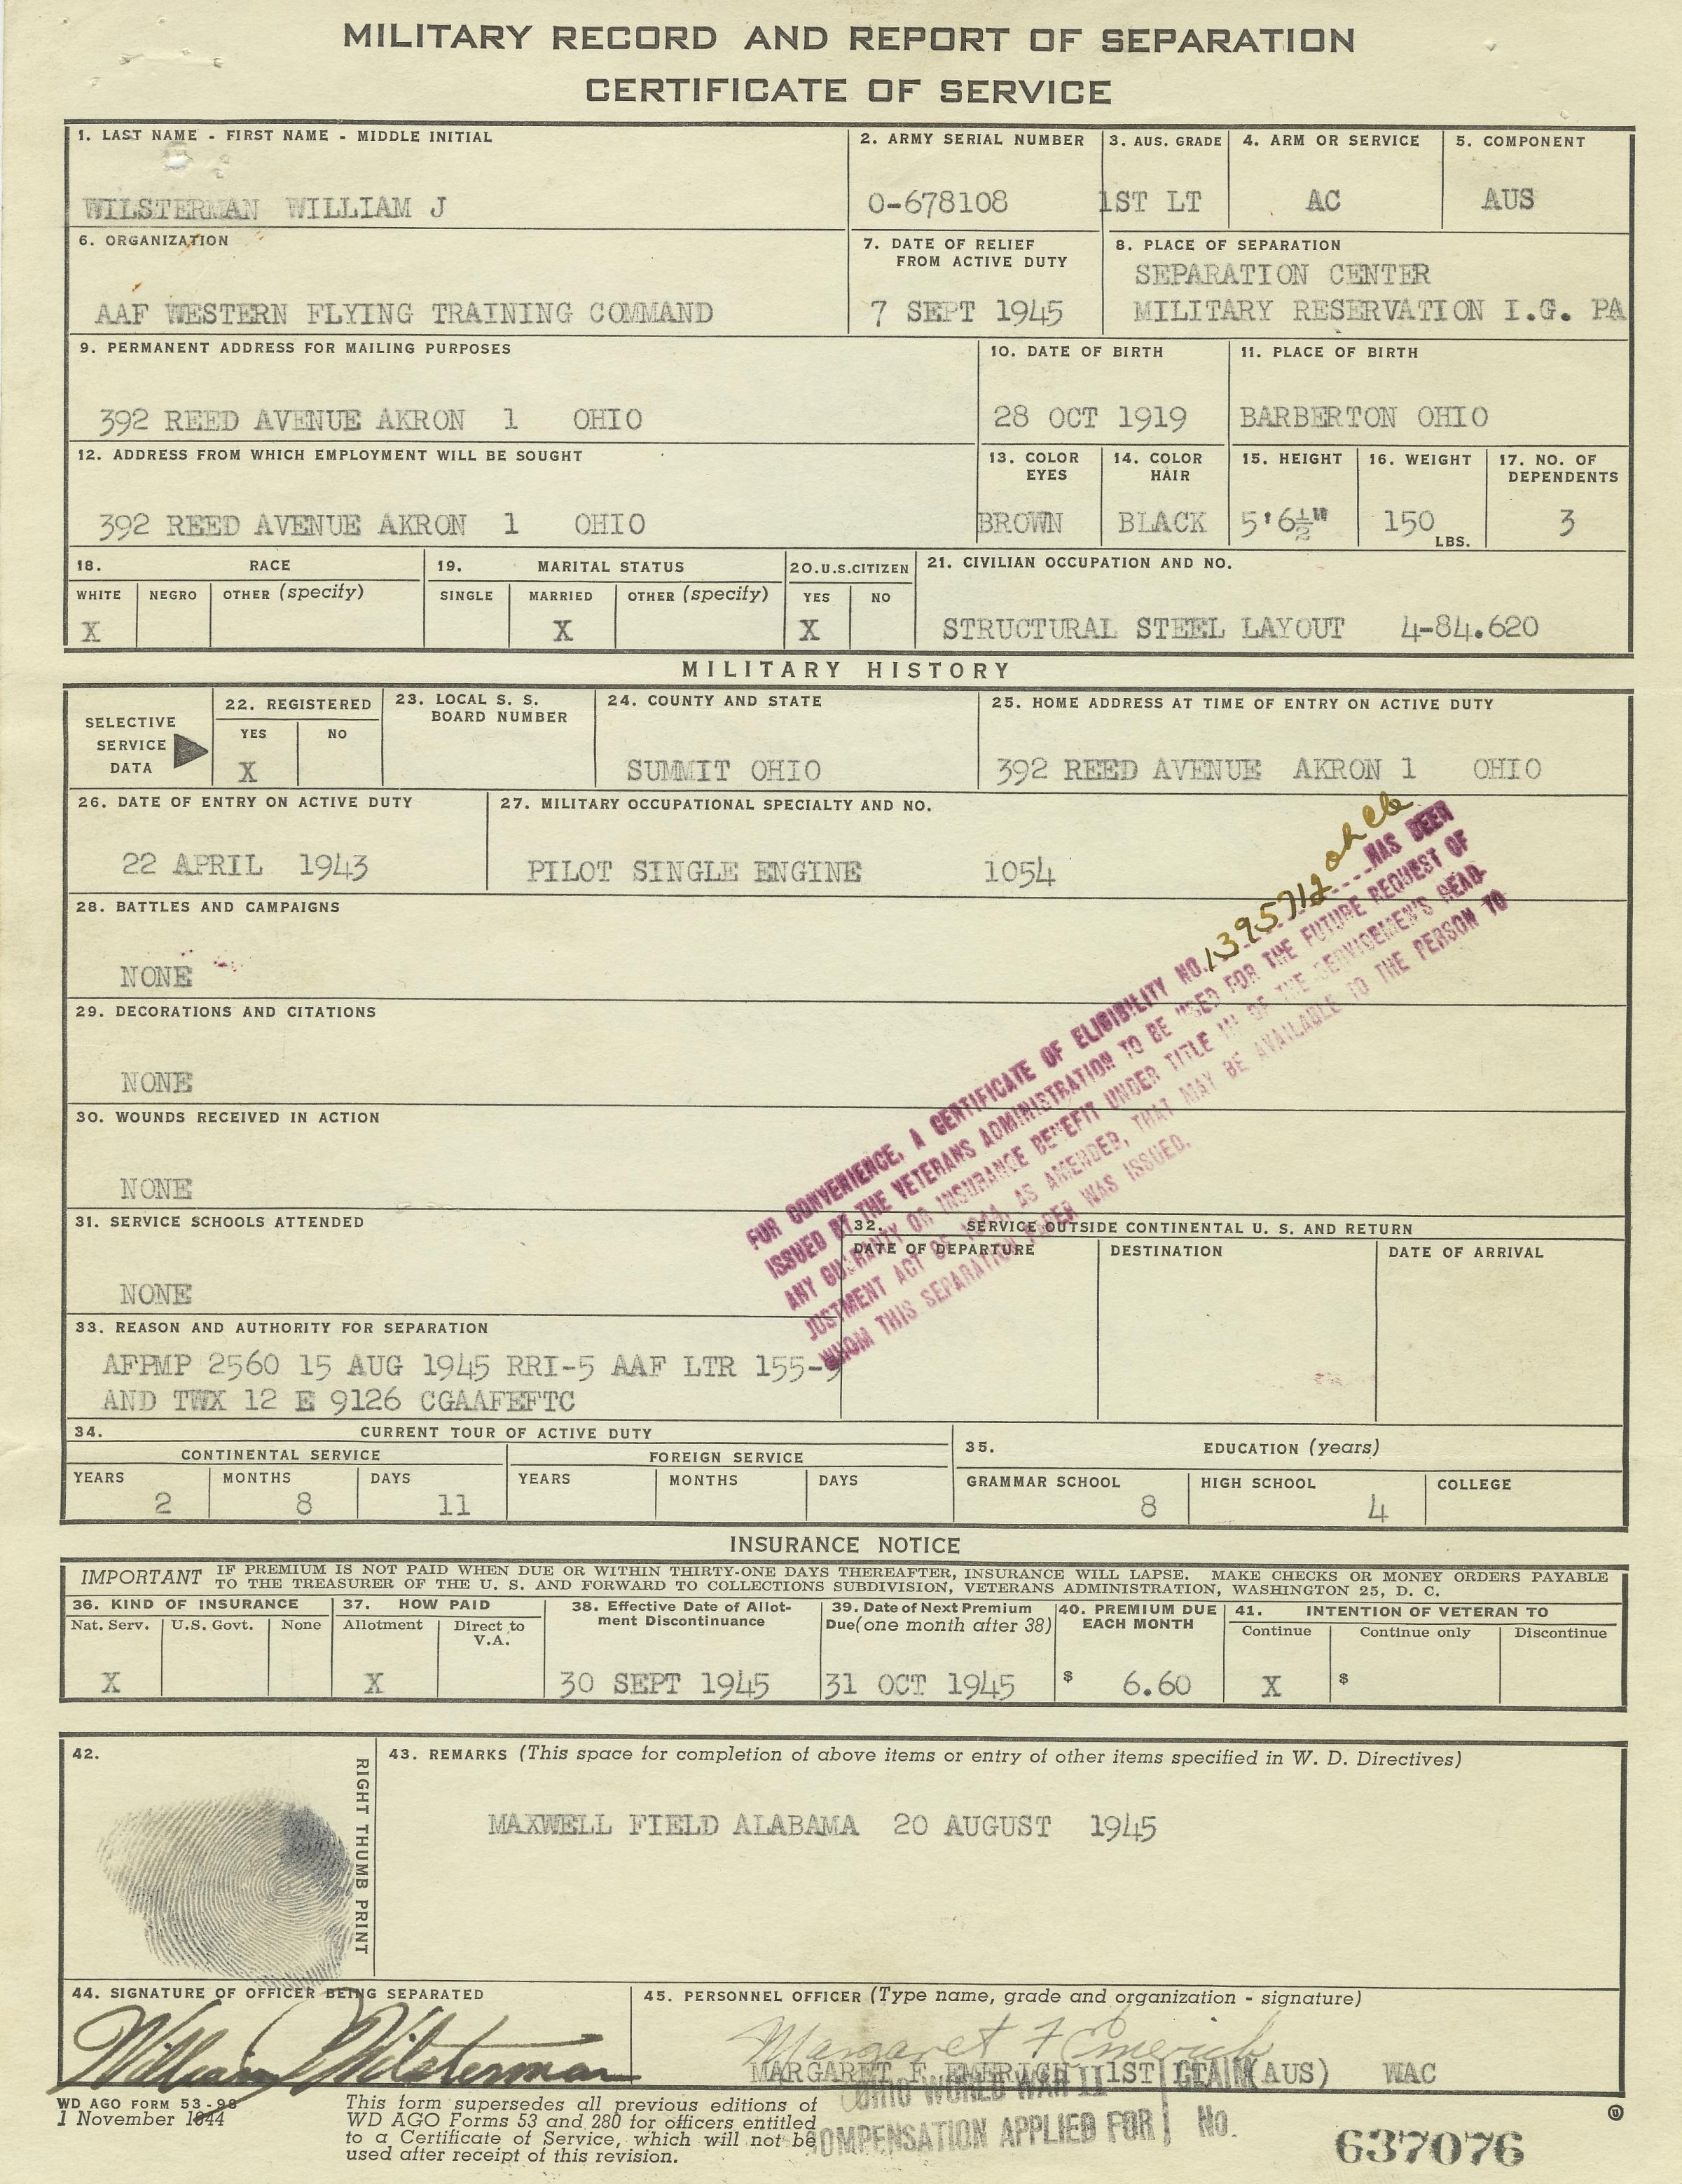 MILITARY RECORD AND REPORT OF SEPARATION
CERTIFICATE OF SERVICE
1. LAST NAME - FIRST NAME - MIDDLE INITIAL
WILSTERMAN WILLIAM J
2. ARMY SERIAL NUMBER
0-678108
3. AUS. GRADE
1ST LT
4. ARM OR SERVICE
AC
5. COMPONENT
AUS
6. ORGANIZATION
AAF WESTERN FLYING TRAINING COMMAND
7. DATE OF RELIEF
FROM ACTIVE DUTY
7 SEPT 1945
8. PLACE OF SEPARATION
SEPARATION CENTER
MILITARY RESERVATION I.G. PA
9. PERMANENT ADDRESS FOR MAILING PURPOSES
392 REED AVENUE AKRON 1 OHIO
10. DATE OF BIRTH
28 OCT 1919
11. PLACE OF BIRTH
BARBERTON OHIO
12. ADDRESS FROM WHICH EMPLOYMENT WILL BE SOUGHT
392 REED AVENUE AKRON 1 OHIO
13. COLOR
EYES
BROWN
14. COLOR
HAIR
BLACK
15. HEIGHT
5'6½"
16. WEIGHT
150 LBS.
17. NO. OF
DEPENDENTS
3
18. RACE
WHITE NEGRO OTHER (specify)
X
19. MARITAL STATUS
SINGLE MARRIED OTHER (specify)
X
20. U.S. CITIZEN
YES NO
X
21. CIVILIAN OCCUPATION AND NO.
STRUCTURAL STEEL LAYOUT 4-84.620
MILITARY HISTORY
SELECTIVE
SERVICE
DATA
22. REGISTERED
YES NO
X
23. LOCAL S. S.
BOARD NUMBER
24. COUNTY AND STATE
SUMMIT OHIO
25. HOME ADDRESS AT TIME OF ENTRY ON ACTIVE DUTY
392 REED AVENUE AKRON 1 OHIO
26. DATE OF ENTRY ON ACTIVE DUTY
22 APRIL 1943
27. MILITARY OCCUPATIONAL SPECIALTY AND NO.
PILOT SINGLE ENGINE 1054
28. BATTLES AND CAMPAIGNS
NONE
29. DECORATIONS AND CITATIONS
NONE
30. WOUNDS RECEIVED IN ACTION
NONE
FOR CONVENIENCE, A CERTIFICATE OF ELIGIBILITY NO. 1395712 HAS BEEN
ISSUED BY THE VETERANS ADMINISTRATION TO BE USED FOR THE FUTURE REQUEST OF
ANY GUARANTY OR INSURANCE BENEFIT UNDER TITLE III OF THE SERVICEMEN'S READ-
JUSTMENT ACT OF 1944, AS AMENDED, THAT MAY BE AVAILABLE TO THE PERSON TO
WHOM THIS SEPARATION PAPER WAS ISSUED.
31. SERVICE SCHOOLS ATTENDED
NONE
32. SERVICE OUTSIDE CONTINENTAL U. S. AND RETURN
DATE OF DEPARTURE DESTINATION DATE OF ARRIVAL
33. REASON AND AUTHORITY FOR SEPARATION
AFPMP 2560 15 AUG 1945 RRI-5 AAF LTR 155-9
AND TWX 12 E 9126 CGAAFEFTC
34. CURRENT TOUR OF ACTIVE DUTY
CONTINENTAL SERVICE FOREIGN SERVICE
YEARS MONTHS DAYS YEARS MONTHS DAYS
2 8 11
35. EDUCATION (years)
GRAMMAR SCHOOL HIGH SCHOOL COLLEGE
8 4
INSURANCE NOTICE
IMPORTANT IF PREMIUM IS NOT PAID WHEN DUE OR WITHIN THIRTY-ONE DAYS THEREAFTER, INSURANCE WILL LAPSE. MAKE CHECKS OR MONEY ORDERS PAYABLE
TO THE TREASURER OF THE U. S. AND FORWARD TO COLLECTIONS SUBDIVISION, VETERANS ADMINISTRATION, WASHINGTON 25, D. C.
36. KIND OF INSURANCE
Nat. Serv. U.S. Govt. None
X
37. HOW PAID
Allotment Direct to
V.A.
X
38. Effective Date of Allot-
ment Discontinuance
30 SEPT 1945
39. Date of Next Premium
Due (one month after 38)
31 OCT 1945
40. PREMIUM DUE
EACH MONTH
$ 6.60
41. INTENTION OF VETERAN TO
Continue Continue only Discontinue
X $
42.
RIGHT THUMB PRINT
43. REMARKS (This space for completion of above items or entry of other items specified in W. D. Directives)
MAXWELL FIELD ALABAMA 20 AUGUST 1945
44. SIGNATURE OF OFFICER BEING SEPARATED
William J Wilsterman
45. PERSONNEL OFFICER (Type name, grade and organization - signature)
Margaret F Emerich
MARGARET F. EMERICH 1ST LT (AUS) WAC
OHIO WORLD WAR II CLAIM
COMPENSATION APPLIED FOR No.
637076
WD AGO FORM 53-98
1 November 1944
This form supersedes all previous editions of
WD AGO Forms 53 and 280 for officers entitled
to a Certificate of Service, which will not be
used after receipt of this revision.